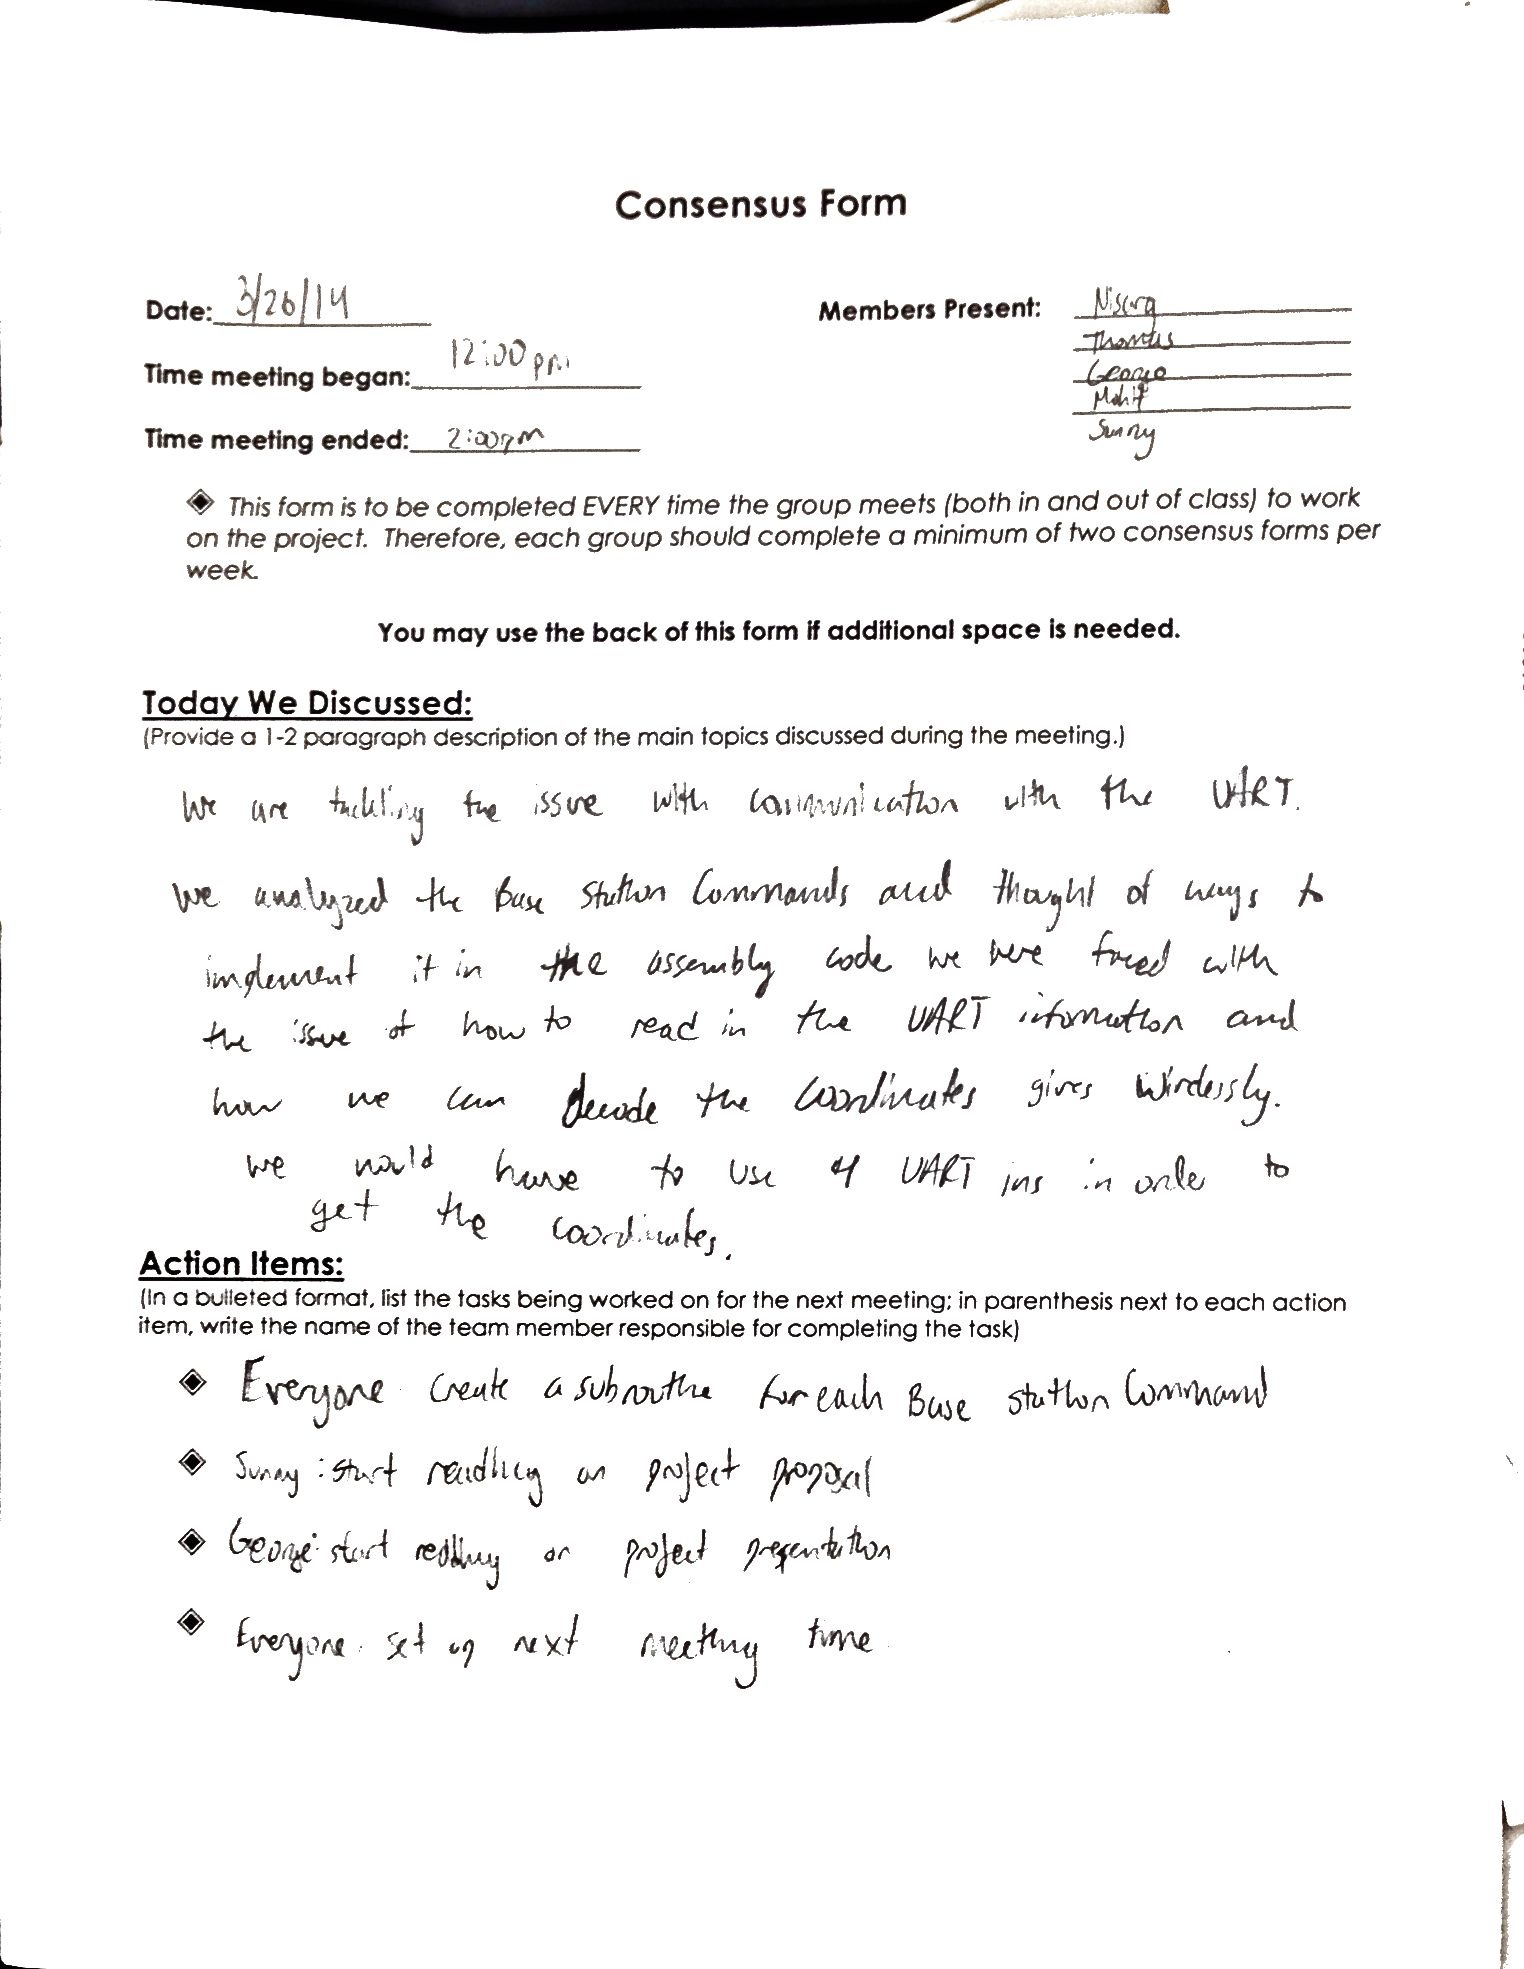 Consensus Form
Date: 3/26/14
Members Present: Nisarg
Thomas
Time meeting began: 12:00 pm
George
Mohit
Time meeting ended: 2:00pm
Sunny
This form is to be completed EVERY time the group meets (both in and out of class) to work
on the project. Therefore, each group should complete a minimum of two consensus forms per
week.
You may use the back of this form if additional space is needed.
Today We Discussed:
(Provide a 1-2 paragraph description of the main topics discussed during the meeting.)
We are tackling the issue with communication with the UART.
We analyzed the Base Station Commands and thought of ways to
implement it in the assembly code we were faced with
the issue of how to read in the UART information and
how we can decode the coordinates gives wirelessly.
We would have to use 4 UART ins in order to
get the coordinates.
Action Items:
(In a bulleted format, list the tasks being worked on for the next meeting; in parenthesis next to each action
item, write the name of the team member responsible for completing the task)
Everyone create a subroutine for each Base station Command
Sunny: start reading on project proposal
George: start reading on project presentation
Everyone: set up next meeting time